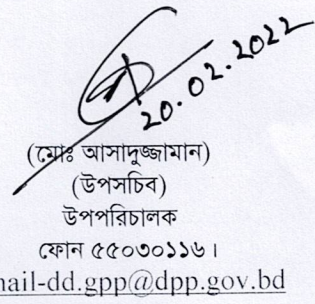 20.02.2022
(মোঃ আসাদুজ্জামান)
(উপসচিব)
উপপরিচালক
ফোন ৫৫০৩০১১৬।
mail-dd.gpp@dpp.gov.bd